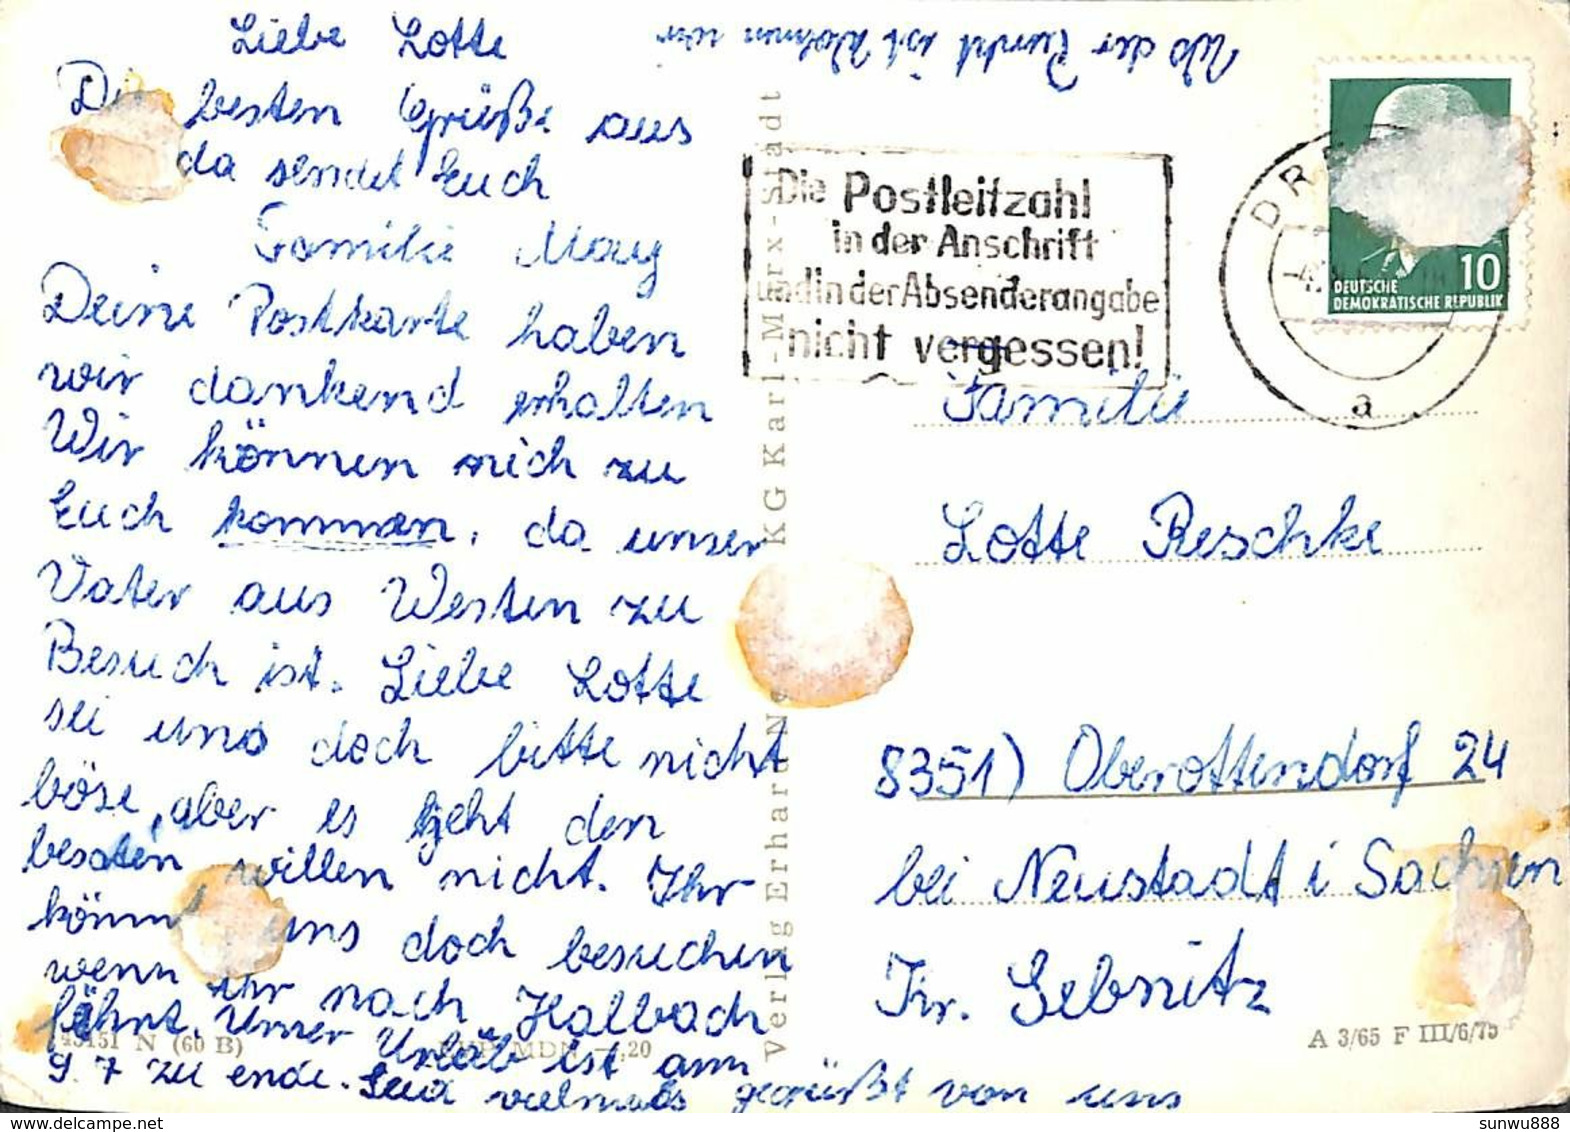 Wo der Punkt ist Wohnen wir
Liebe Lotte
Die besten Grüße aus
da sendet Euch
Familie May
Deine Postkarte haben
wir dankend erhalten
Wir können nich zu
Euch kommen, da unser
Vater aus Westen zu
Besuch ist. Liebe Lotte
sei uns doch bitte nicht
böse, aber es geht den
besten willen nicht. Ihr
könnt uns doch besuchen
wenn ihr nach Halbach
fährt. Unser Urlab ist am
9.7 zu ende. Seid vielmals gegrüßt von uns
Die Postleitzahl
in der Anschrift
und in der Absenderangabe
nicht vergessen!
DR
a
10
DEUTSCHE
DEMOKRATISCHE REPUBLIK
Familie
Lotte Reschke
8351) Oberottendorf 24
bei Neustadt i Sachsen
Kr. Sebnitz
Verlag Erhard Ne KG Karl-Marx-Stadt
45151 N (60 B) MDN -,20
A 3/65 F III/6/75
sunwu888